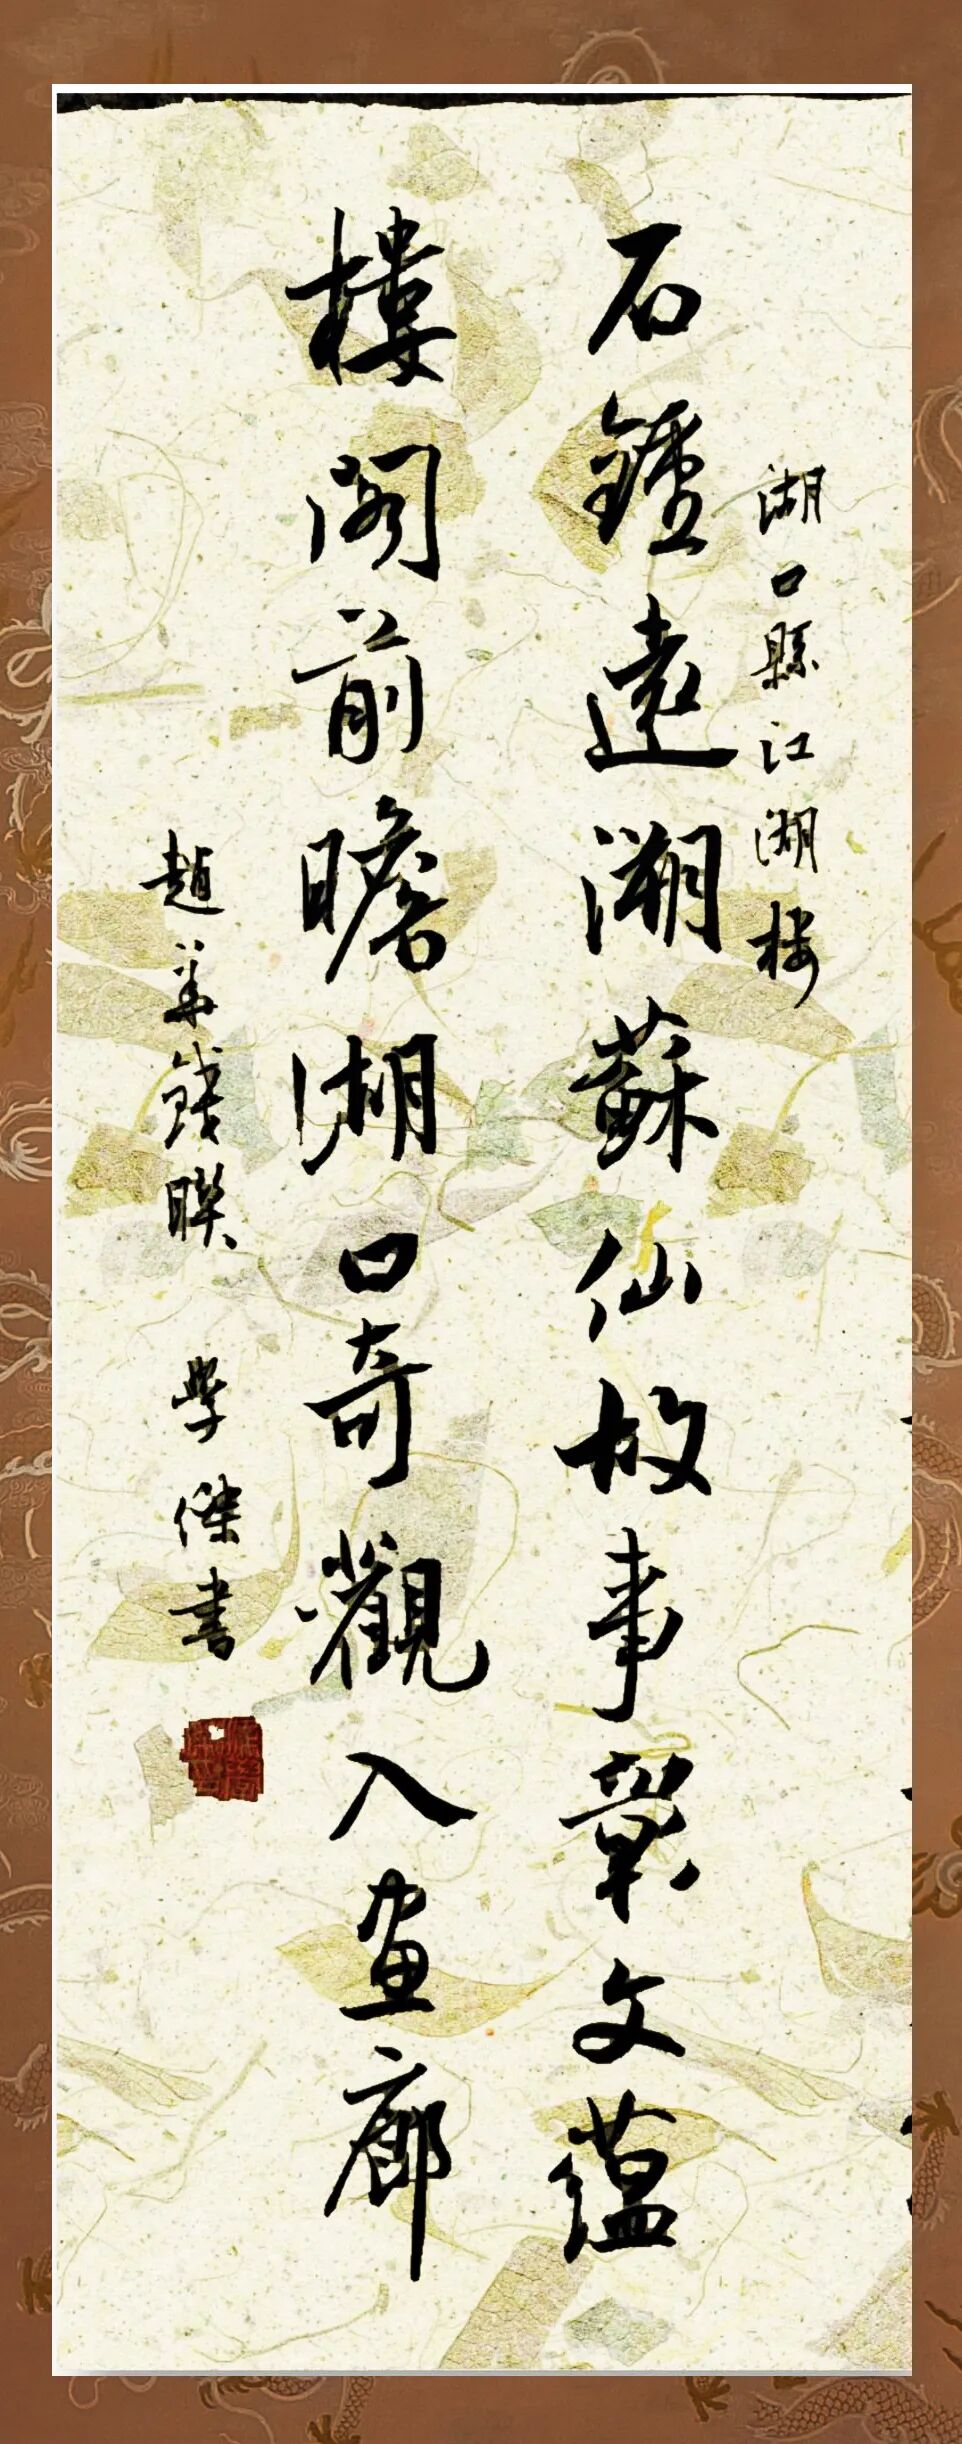 湖口縣江湖楼
石鐘遠溯蘇仙故事彙文蘊
樓閣前瞻湖口奇觀入画廊
趙華錢聯 學傑書